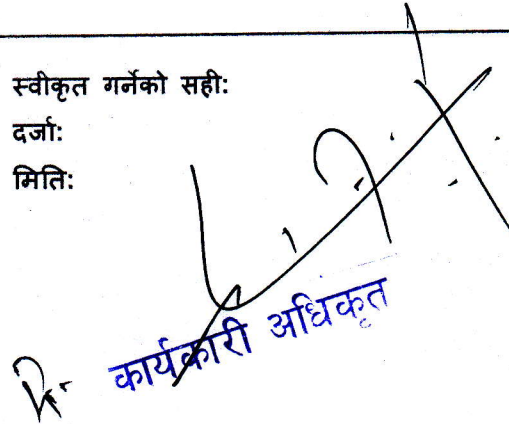 स्वीकृत गर्नेको सही:
दर्जा:
मिति:
कार्यकारी अधिकृत